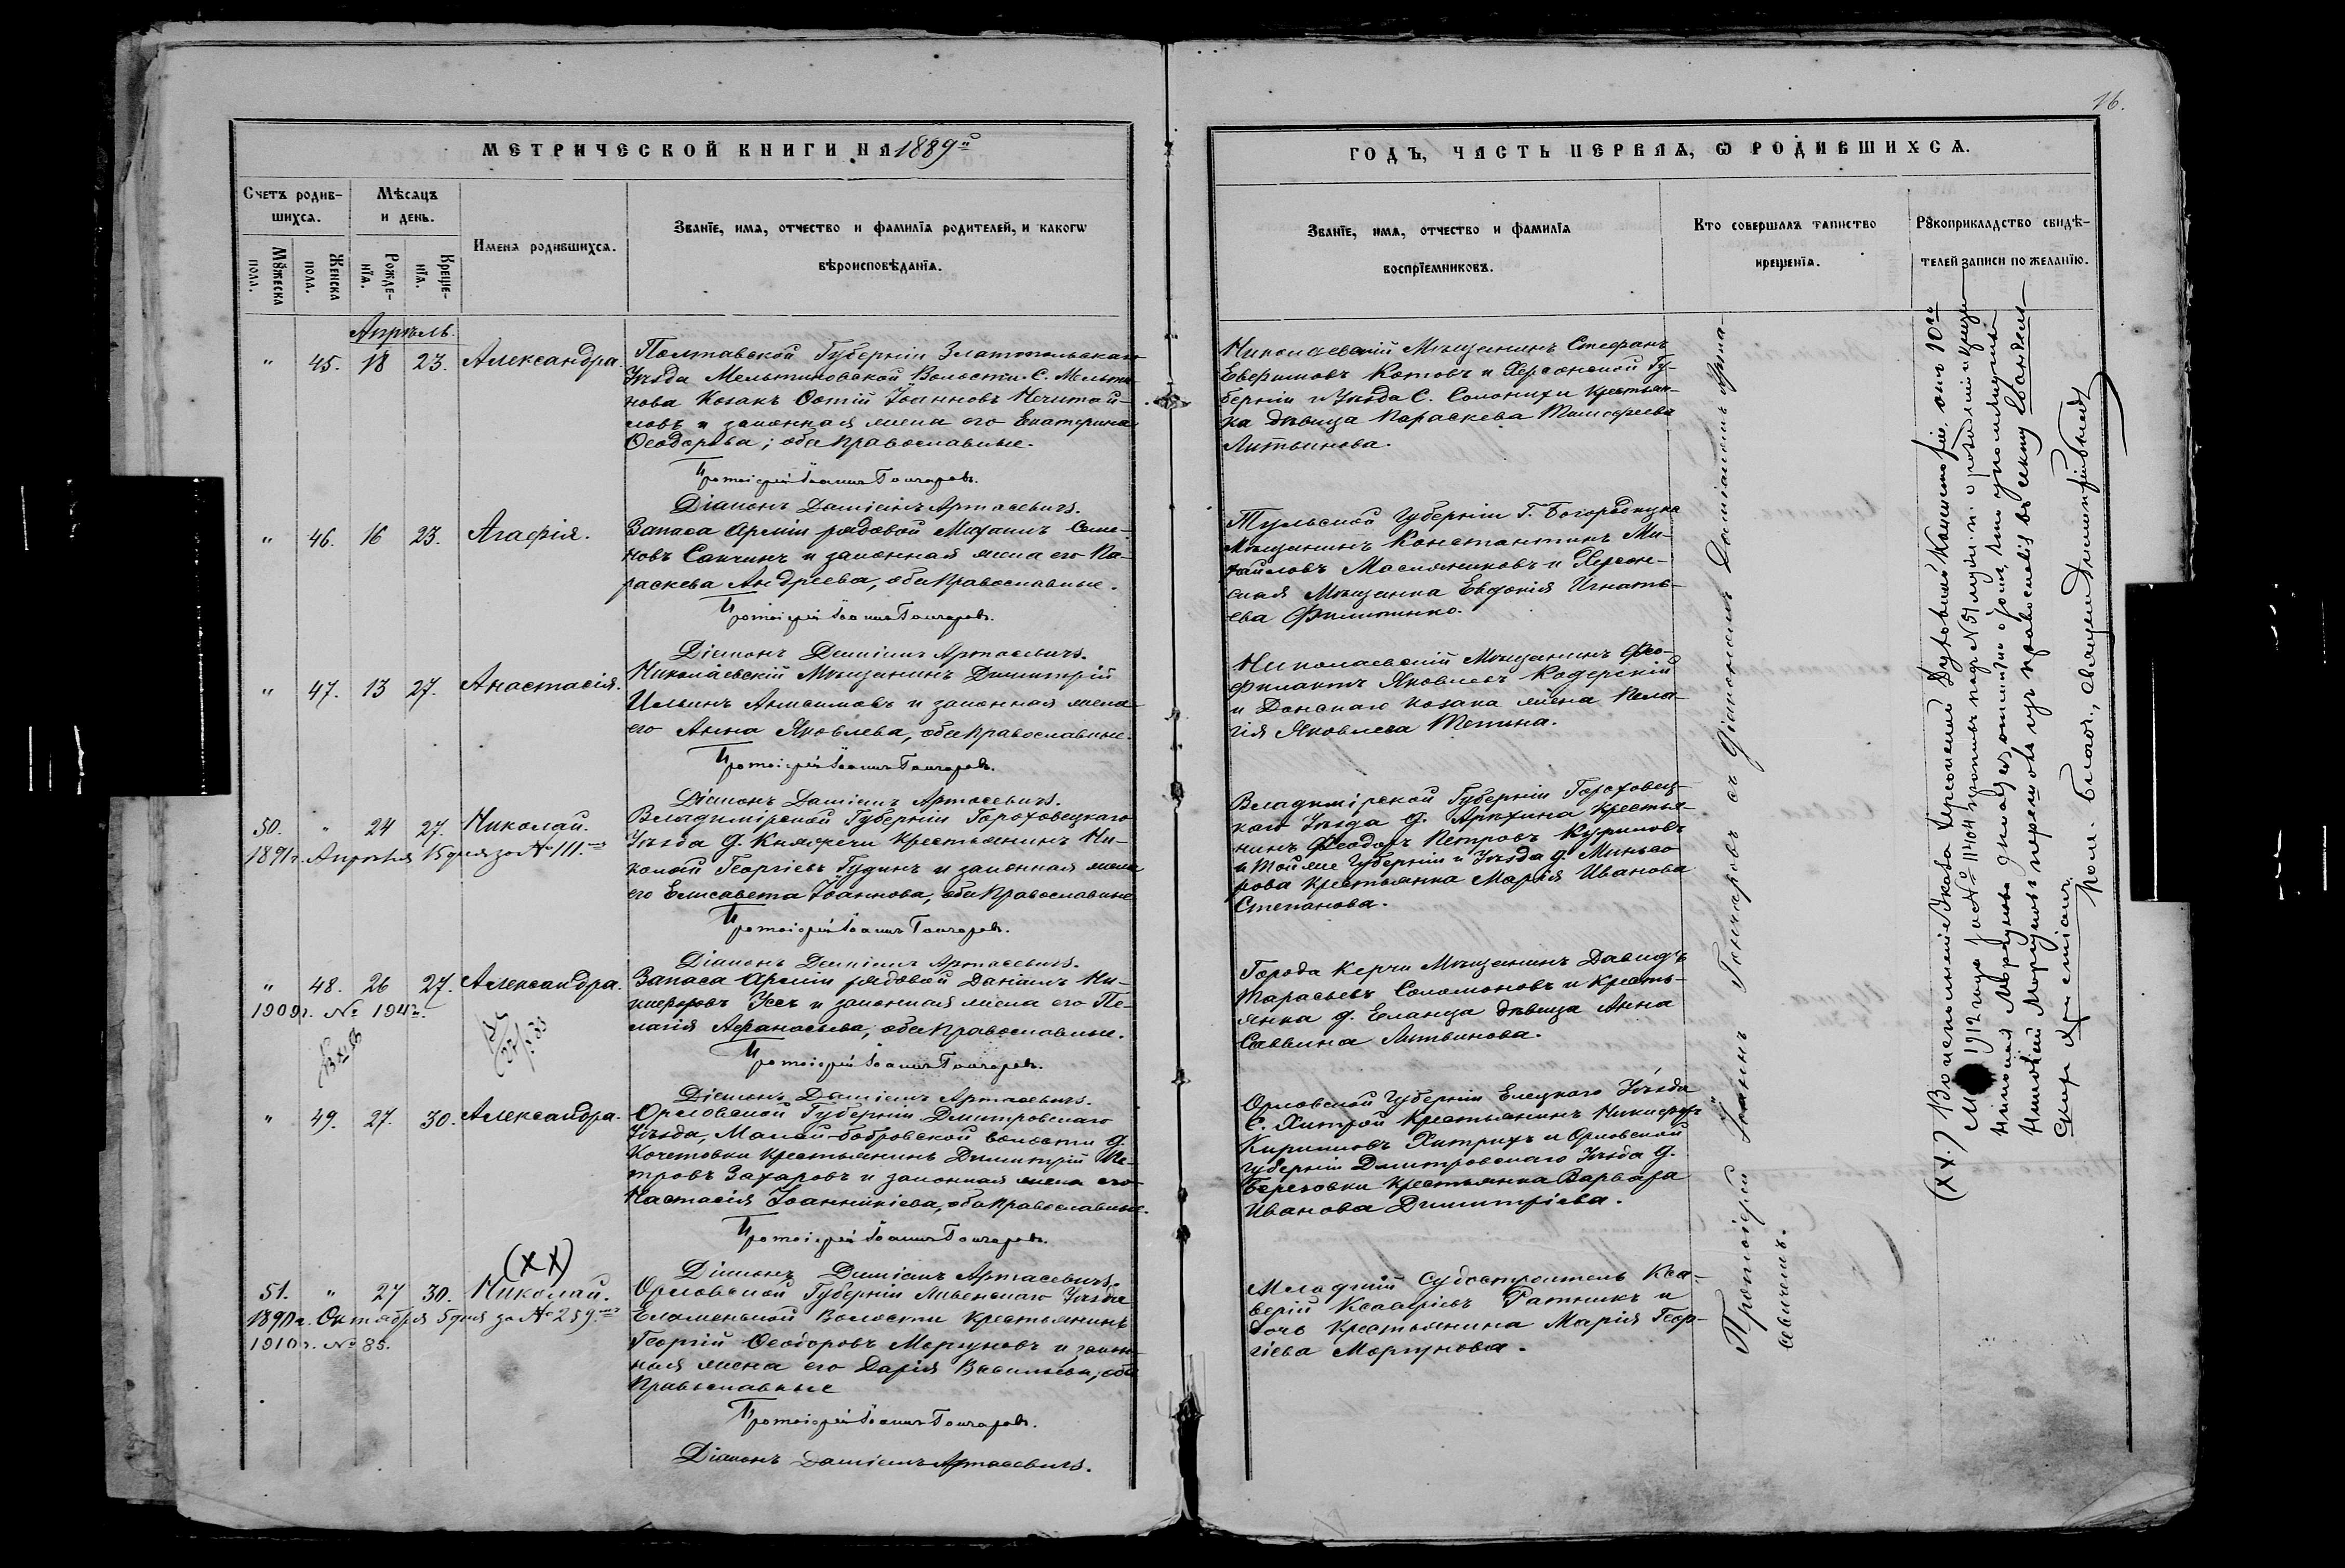 16.
МЕТРИЧЕСКОЙ КНИГИ НА 1889й
ГОДЪ, ЧАСТЬ ПЕРВАЯ, Ѡ РОДИВШИХСЯ.
Счетъ родив-
шихся.
Мѣсяцъ
и день.
Имена родившихся.
Званїе, имя, отчество и фамилїа родителей, и какогѡ
вѣроисповѣданїа.
Мꙋжеска
пола.
Женска
пола.
Рожде-
нїа.
Креще-
нїа.
Званїе, имя, отчество и фамилїа
воспрїемниковъ.
Кто совершалъ таинство
крещенїа.
Рꙋкоприкладство свидѣ-
телей записи по желанїю.
Апрѣль.
" 45. 18 23. Александра.
Полтавской Губерніи Златопольскаго
Уѣзда Мельниковской Волости С. Мельни-
кова Козакъ Фотій Іоанновъ Нечитай-
ловъ и законная жена его Екатерина
Ѳеодорова; оба православные.
Протоіерей Іоаннъ Гончаровъ.
Діаконъ Даміанъ Артасевичъ.
Николаевскій Мѣщанинъ Стефанъ
Евѳимовъ Котовъ и Херсонской Гу-
берніи и Уѣзда С. Солонихи Крестьян-
ка дѣвица Параскева Тимоѳеева
Литвинова.
" 46. 16 23. Агафія.
Запаса Арміи рядовой Михаилъ Семе-
новъ Санчинъ и законная жена его Па-
раскева Андреева, оба православные.
Протоіерей Іоаннъ Гончаровъ.
Діаконъ Даміанъ Артасевичъ.
Тульской Губерніи Г. Богородицка
Мѣщанинъ Константинъ Ми-
хайловъ Масляниковъ и Херсон-
ская Мѣщанка Евдокія Игнать-
ева Филипенко.
" 47. 13 27. Анастасія.
Николаевскій Мѣщанинъ Димитрій
Ильинъ Анисимовъ и законная жена
его Анна Яковлева, оба православные.
Протоіерей Іоаннъ Гончаровъ.
Діаконъ Даміанъ Артасевичъ.
Николаевскій Мѣщанинъ Фео-
филактъ Яковлевъ Кодерскій
и Донскаго козака жена Пела-
гія Яковлева Тепина.
50. " 24 27. Николай.
1891 г. Апрѣля 15 дня за № 111.
Владимірской Губерніи Гороховецкаго
Уѣзда д. Княжичи Крестьянинъ Ни-
колай Георгіевъ Гудинъ и законная жена
его Елисавета Іоаннова, оба Православные
Протоіерей Іоаннъ Гончаровъ.
Діаконъ Даміанъ Артасевичъ.
Владимірской Губерніи Гороховец-
каго Уѣзда д. Арюхина Крестья-
нинъ Феодоръ Петровъ Куриловъ
и Той же Губерніи и Уѣзда д.
рова Крестьянка Марія Иванова
Степанова.
" 48. 26 27. Александра.
1909 г. № 194
Запаса Арміи рядовой Даніилъ Ни-
кифоровъ Усъ и законная жена его Пе-
лагія Афанасьева, оба православные.
Протоіерей Іоаннъ Гончаровъ.
Діаконъ Даміанъ Артасевичъ.
Города Керчи Мѣщанинъ Давидъ
Тарасьевъ Соломоновъ и Кресть-
янка д. Еланца дѣвица Анна
Саввина Литвинова.
" 49. 27. 30. Александра.
Орловской Губерніи Дмитровскаго
Уѣзда, Мало-бобровской волости д.
Кочетовки Крестьянинъ Димитрій Пе-
тровъ Захаровъ и законная жена его
Настасія Іоанникіева, оба православные.
Протоіерей Іоаннъ Гончаровъ.
Діаконъ Даміанъ Артасевичъ.
Орловской Губерніи Елецкаго Уѣзда
С. Хитрой Крестьянинъ Никифоръ
Кириловъ Хитрихъ и Орловской
Губерніи Дмитровскаго Уѣзда д.
Березовки Крестьянка Варвара
Иванова Димитріева.
(XX)
51. " 27 30. Николай.
1898 г. Октября 5 дня за № 259.
1910 г. № 85.
Орловской Губерніи Ливенскаго Уѣзда
Волости Крестьянинъ
Георгій Ѳеодоровъ Моргуновъ и закон-
ная жена его Дарія Васильева, оба
Православные
Протоіерей Іоаннъ Гончаровъ.
Діаконъ Даміанъ Артасевичъ.
Младшій Судостроитель Кса-
верій Ксаверіевъ Ратникъ и
дочь Крестьянина Марія Геор-
гіева Моргунова.
Протоіерей Іоаннъ Гончаровъ съ Діакономъ Даміаномъ Арта-
севичемъ.
(XX.) Во исполненіе Указа Херсонской Духовной Консисторіи, отъ 10го
1912 года за № 11404
Моргуновъ перешолъ изъ православія въ секту Евангель-
скихъ христіанъ.